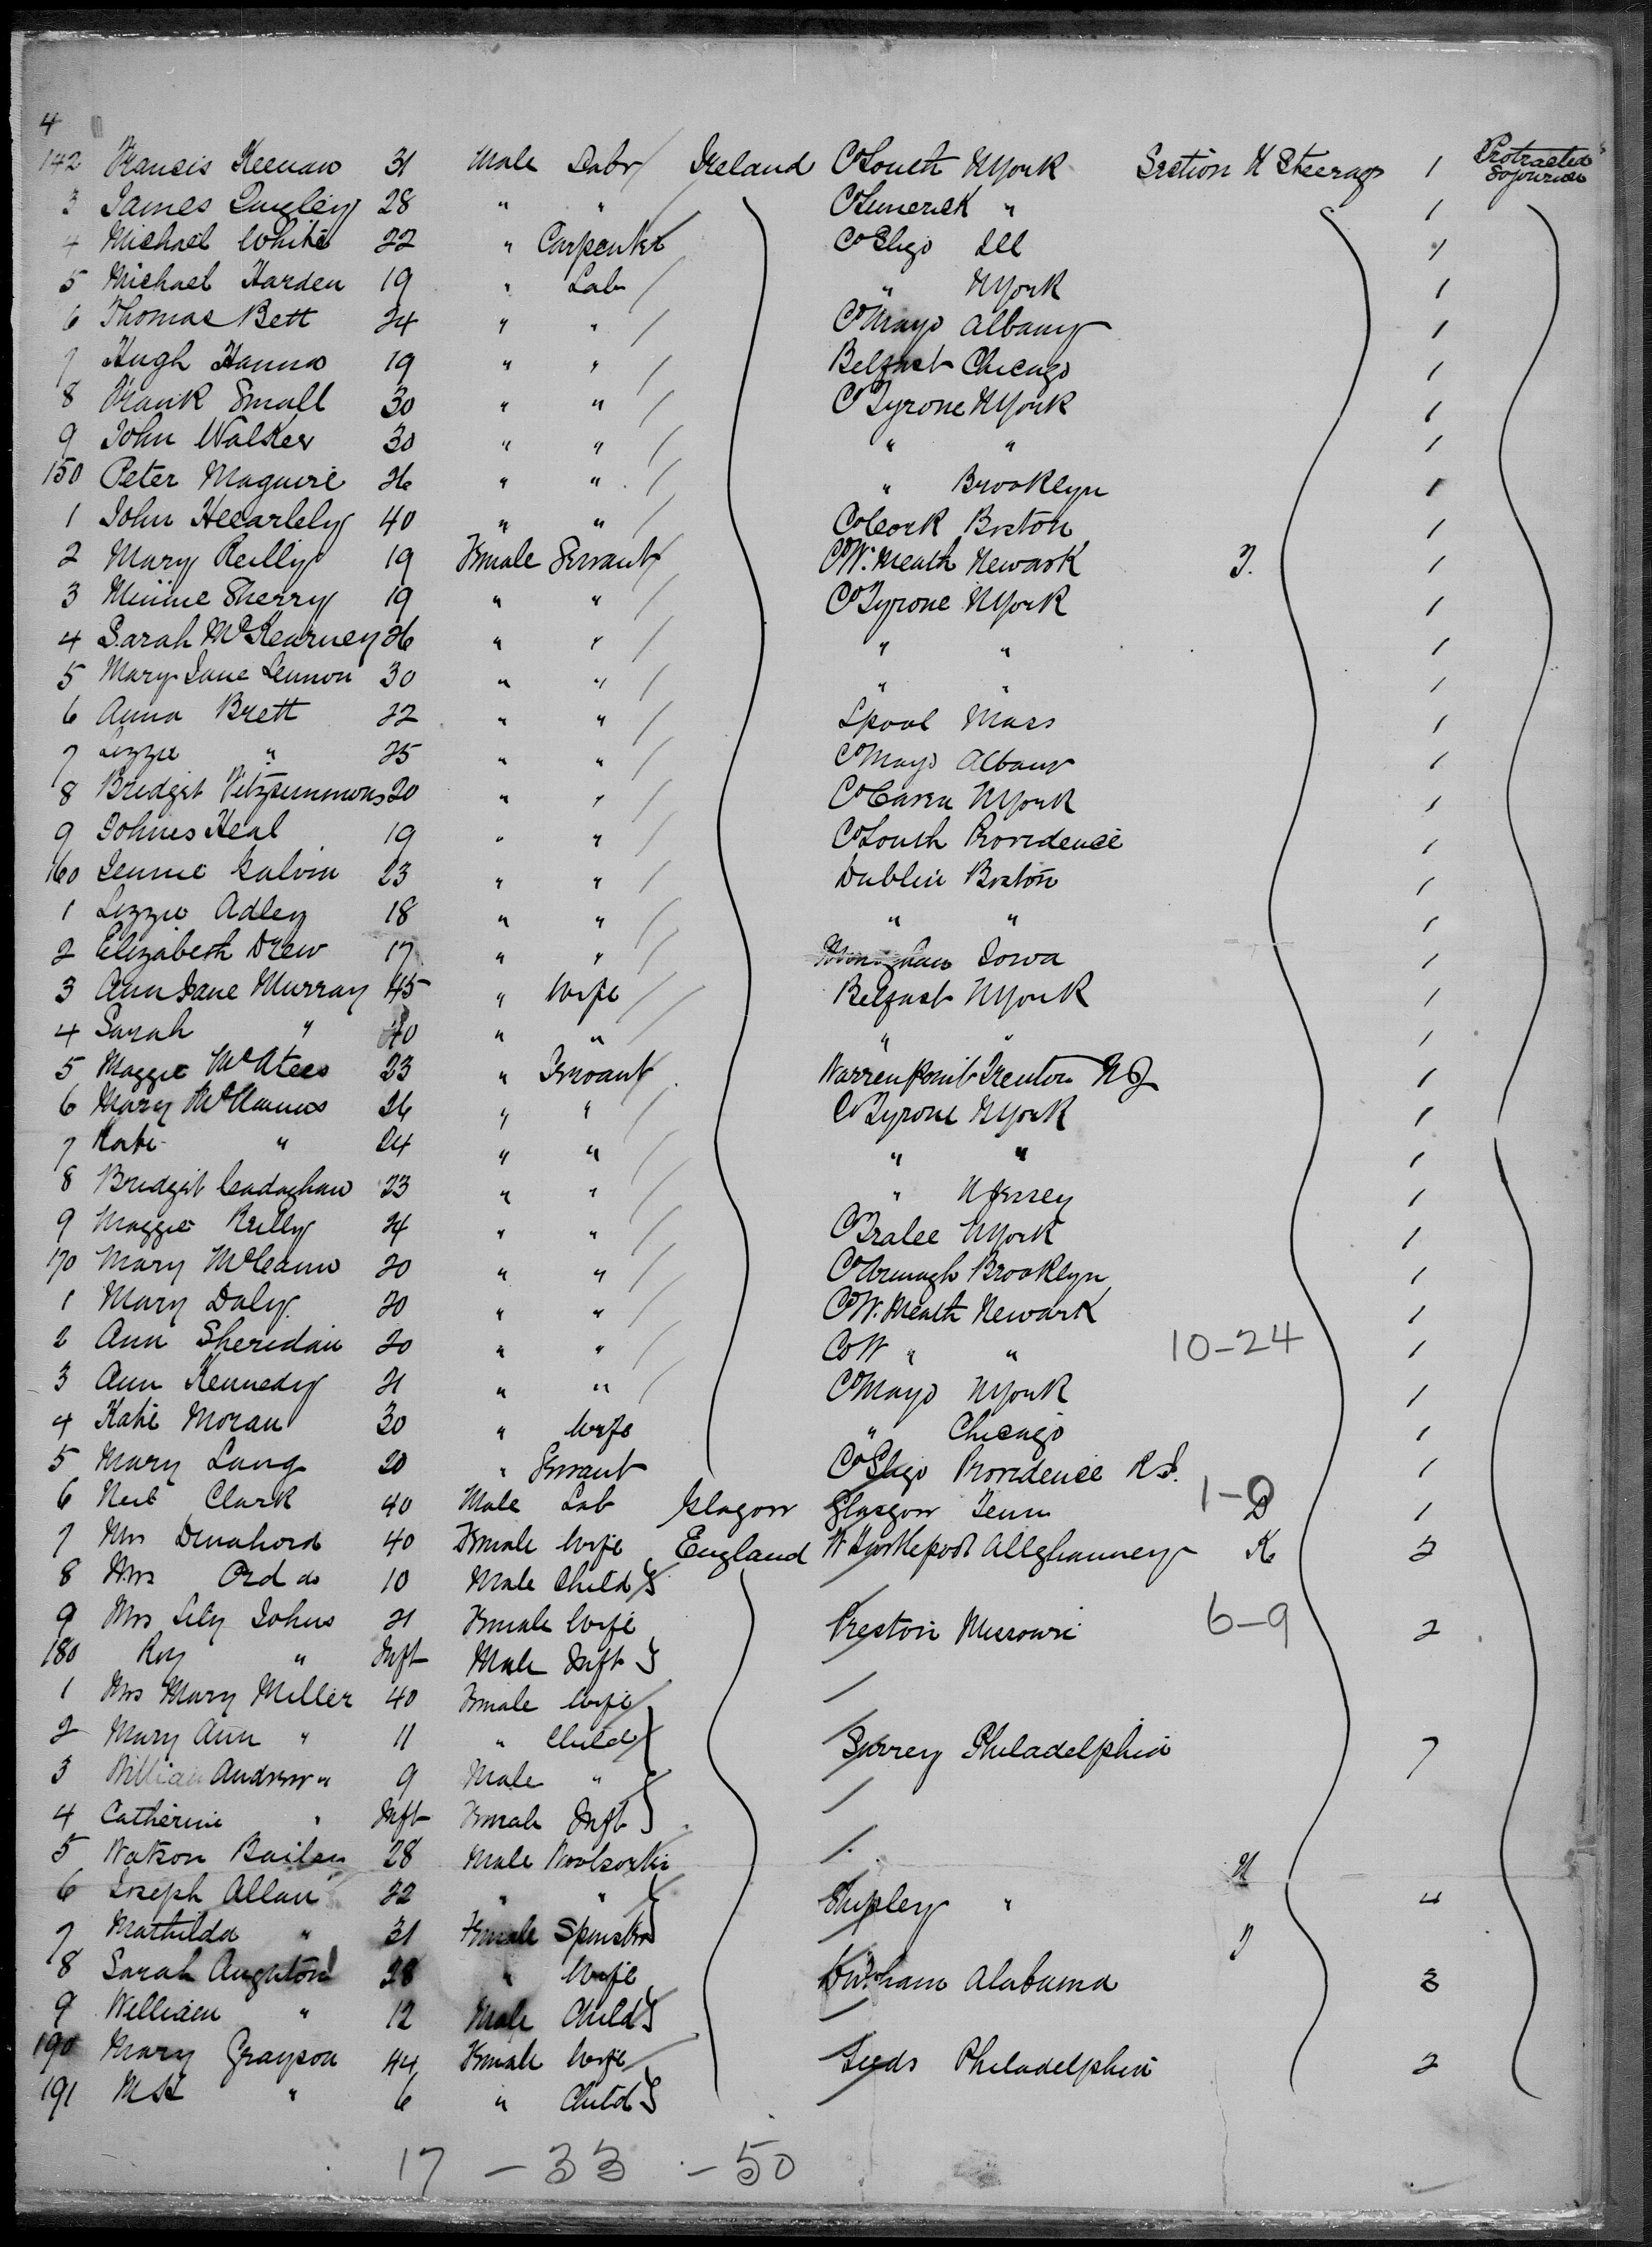 4
142 Francis Keenan 31 Male Labr Ireland Co Louth NYork Section H Steerage 1 Protracted Sojourn
3 James Quigley 28 " " Co Limerick " 1
4 Michael White 22 " Carpenter Co Sligo Ill 1
5 Michael Harden 19 " Lab " NYork 1
6 Thomas Bett 24 " " Co Mayo Albany 1
7 Hugh Hanna 19 " " Belfast Chicago 1
8 Frank Small 30 " " Co Tyrone NYork 1
9 John Walker 30 " " " " 1
150 Peter Maguire 26 " " " Brooklyn 1
1 John 40 " " Co Cork Boston 1
2 Mary Reilly 19 Female Servant Co W. Meath Newark J. 1
3 Minnie Sherry 19 " " Co Tyrone NYork 1
4 Sarah McKearney 26 " " " " 1
5 Mary Jane Lennon 30 " " " " 1
6 Anna Brett 22 " " Lpool Mass 1
7 Lizzie " 25 " " Co Mayo Albany 1
8 Bridget Fitzsimmons 20 " " Co Cavan NYork 1
9 Heal 19 " " Co Louth Providence 1
160 Jennie Galvin 23 " " Dublin Boston 1
1 Lizzie Adley 18 " " " " 1
2 Elizabeth Drew 17 " " Iowa 1
3 Ann Jane Murray 45 " Wife Belfast NYork 1
4 Sarah " 40 " " " " 1
5 Maggie McAteer 23 " Servant Warrenpoint Trenton NJ 1
6 Mary McManus 26 " " Co Tyrone NYork 1
7 Kate " 24 " " " " 1
8 Bridget Cadaghan 23 " " " NJersey 1
9 Maggie Reilly 24 " " Co Tralee NYork 1
170 Mary McCann 20 " " Co Armagh Brooklyn 1
1 Mary Daly 20 " " Co W. Meath Newark 1
2 Ann Sheridan 20 " " Co W " " 10-24 1
3 Ann Kennedy 21 " " Co Mayo NYork 1
4 Katie Moran 30 " Wife " Chicago 1
5 Mary Lang 20 " Servant Co Sligo Providence R.I. 1
6 Neil Clark 40 Male Lab Glagow Glasgow Tenn 1-0 D 1
7 Mrs 40 Female Wife England W Hartlepool Alleghanney K 2
8 Mrs Ord do 10 Male Child
9 Mrs Lily Johns 21 Female Wife Preston Missouri 6-9 2
180 Roy " Inft Male Inft
1 Mrs Mary Miller 40 Female Wife
2 Mary Ann " 11 " Child Surrey Philadelphia 7
3 William Andrew " 9 Male "
4 Catherine " Inft Female Inft
5 Watson Bailey 28 Male Woolsorter H
6 Joseph Allan 22 " " Shipley " 4
7 Mathilda " 31 Female Spinster J
8 Sarah Aughton 28 " Wife Durham Alabama 3
9 William " 12 Male Child
190 Mary Grayson 44 Female Wife Leeds Philadelphia 2
191 " 6 " Child
17 - 33 - 50